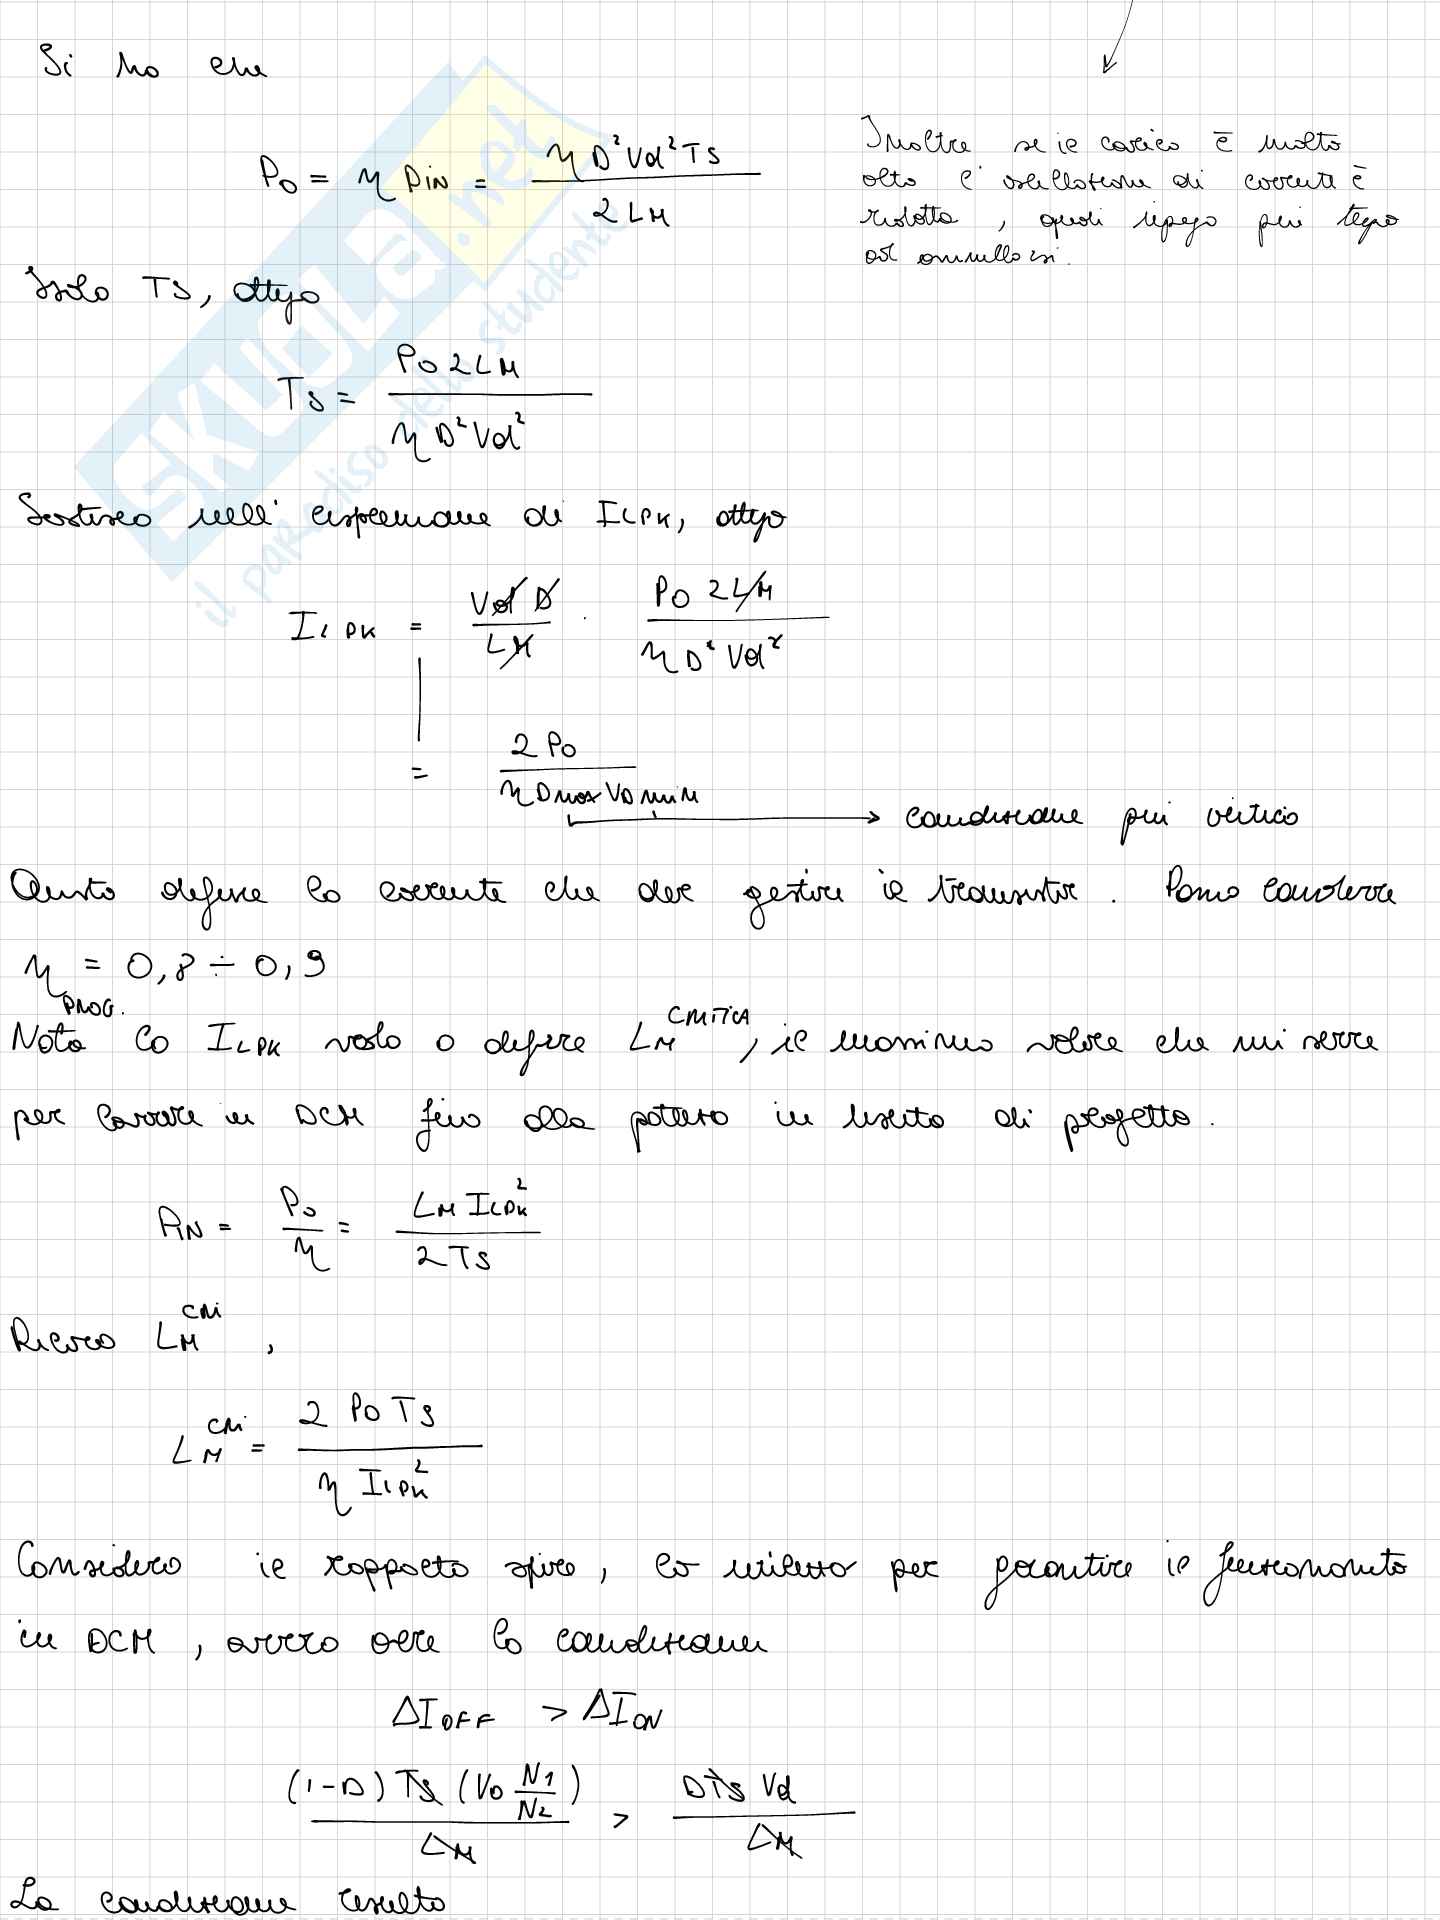 Si ha che
Po = η PIN = η D² Vd² TS / 2 LM
Inoltre se il carico è molto
alto l' oscillazione di corrente è
ridotta, quindi impiego più tempo
ad annullarsi.
Isolo TS, ottengo
TS = Po 2 LM / η D² Vd²
Sostituisco nell' espressione di ILPK, ottengo
ILPK = Vd D / LM · Po 2 LM / η D² Vd²
= 2 Po / η Dmax VD min → condizione più critica
Questo definisce la corrente che deve gestire il transistor. Posso considerare
η PROG. = 0,8 ÷ 0,9
Nota la ILPK vado a definire LM CRITICA, il massimo valore che mi serve
per lavorare in DCM fino alla potenza in uscita di progetto.
PIN = Po / η = LM ILPK² / 2 TS
Ricavo LM CRI,
LM CRI = 2 Po TS / η ILPK²
Considero il rapporto spire, lo utilizzo per garantire il funzionamento
in DCM, ovvero oltre la condizione
ΔI OFF > ΔI ON
(1-D) TS (Vo N1/N2) / LM > D TS Vd / LM
La condizione risulta
SKUOLA.net
il paradiso dello studente